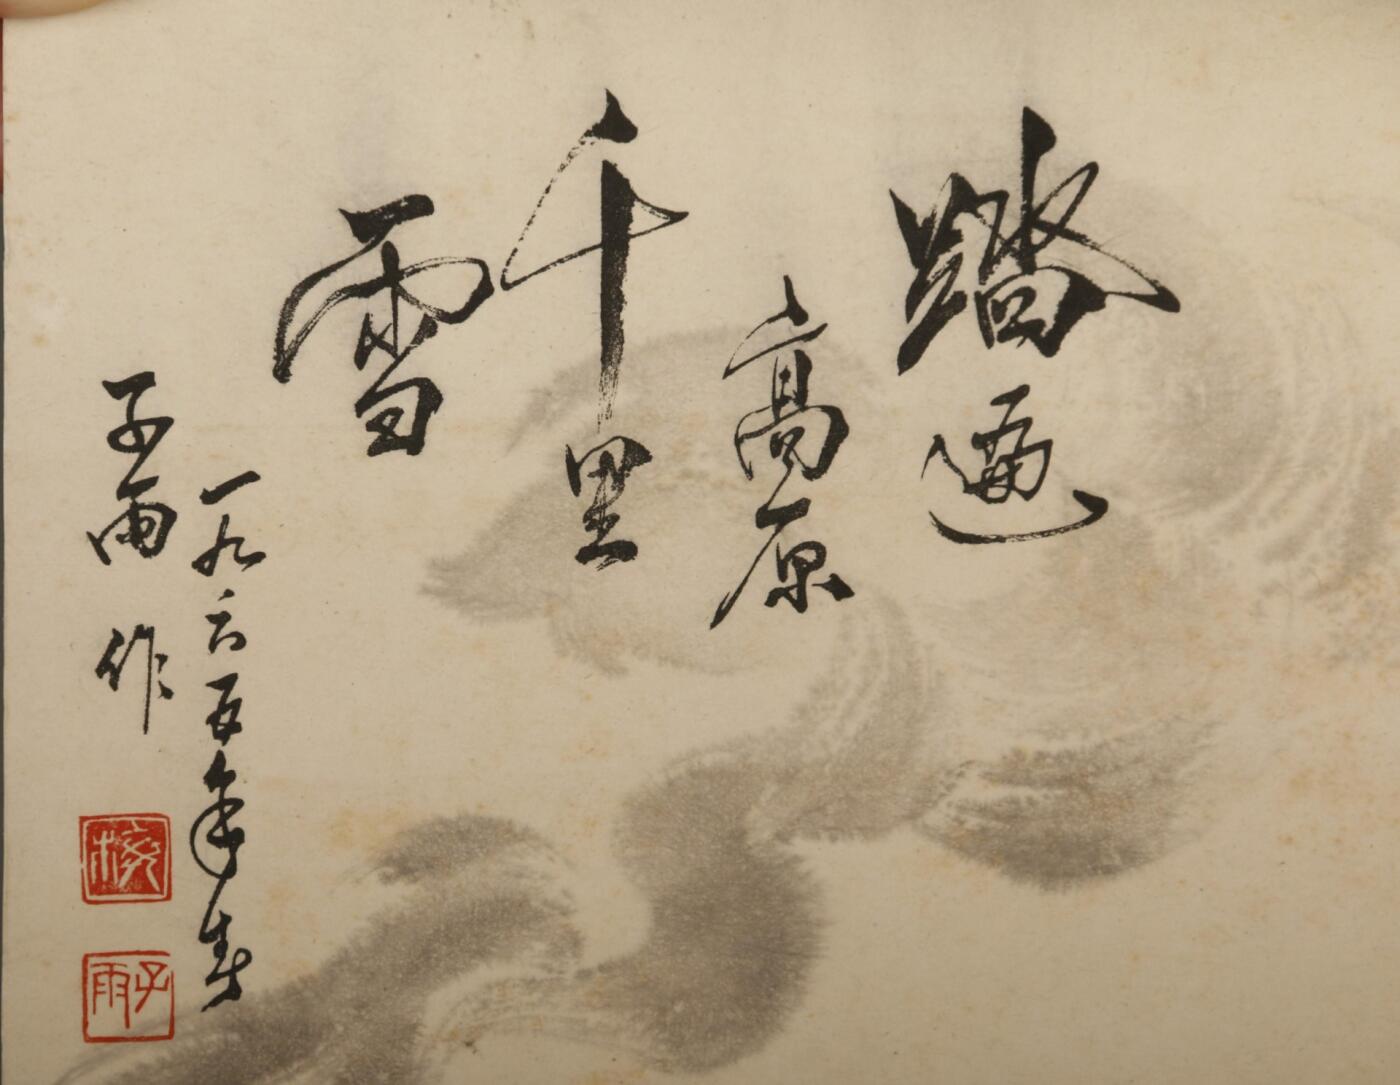 踏遍
高原
千里
雪
一九六五年春
子雨作
子雨